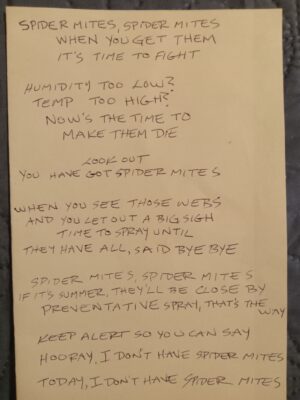 SPIDER MITES, SPIDER MITES
WHEN YOU GET THEM
IT'S TIME TO FIGHT
HUMIDITY TOO LOW?
TEMP TOO HIGH?
NOW'S THE TIME TO
MAKE THEM DIE
LOOK OUT
YOU HAVE GOT SPIDER MITES
WHEN YOU SEE THOSE WEBS
AND YOU LET OUT A BIG SIGH
TIME TO SPRAY UNTIL
THEY HAVE ALL, SAID BYE BYE
SPIDER MITES, SPIDER MITES
IF IT'S SUMMER, THEY'LL BE CLOSE BY
PREVENTATIVE SPRAY, THAT'S THE
WAY
KEEP ALERT SO YOU CAN SAY
HOORAY, I DON'T HAVE SPIDER MITES
TODAY, I DON'T HAVE SPIDER MITES